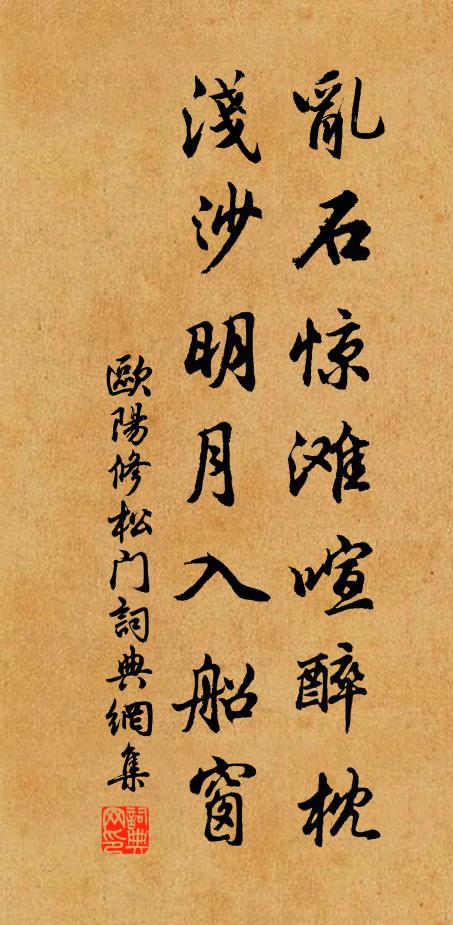 亂石惊滩喧醉枕
淺沙明月入船窗
歐陽修松门詞典網集
詞典
网印